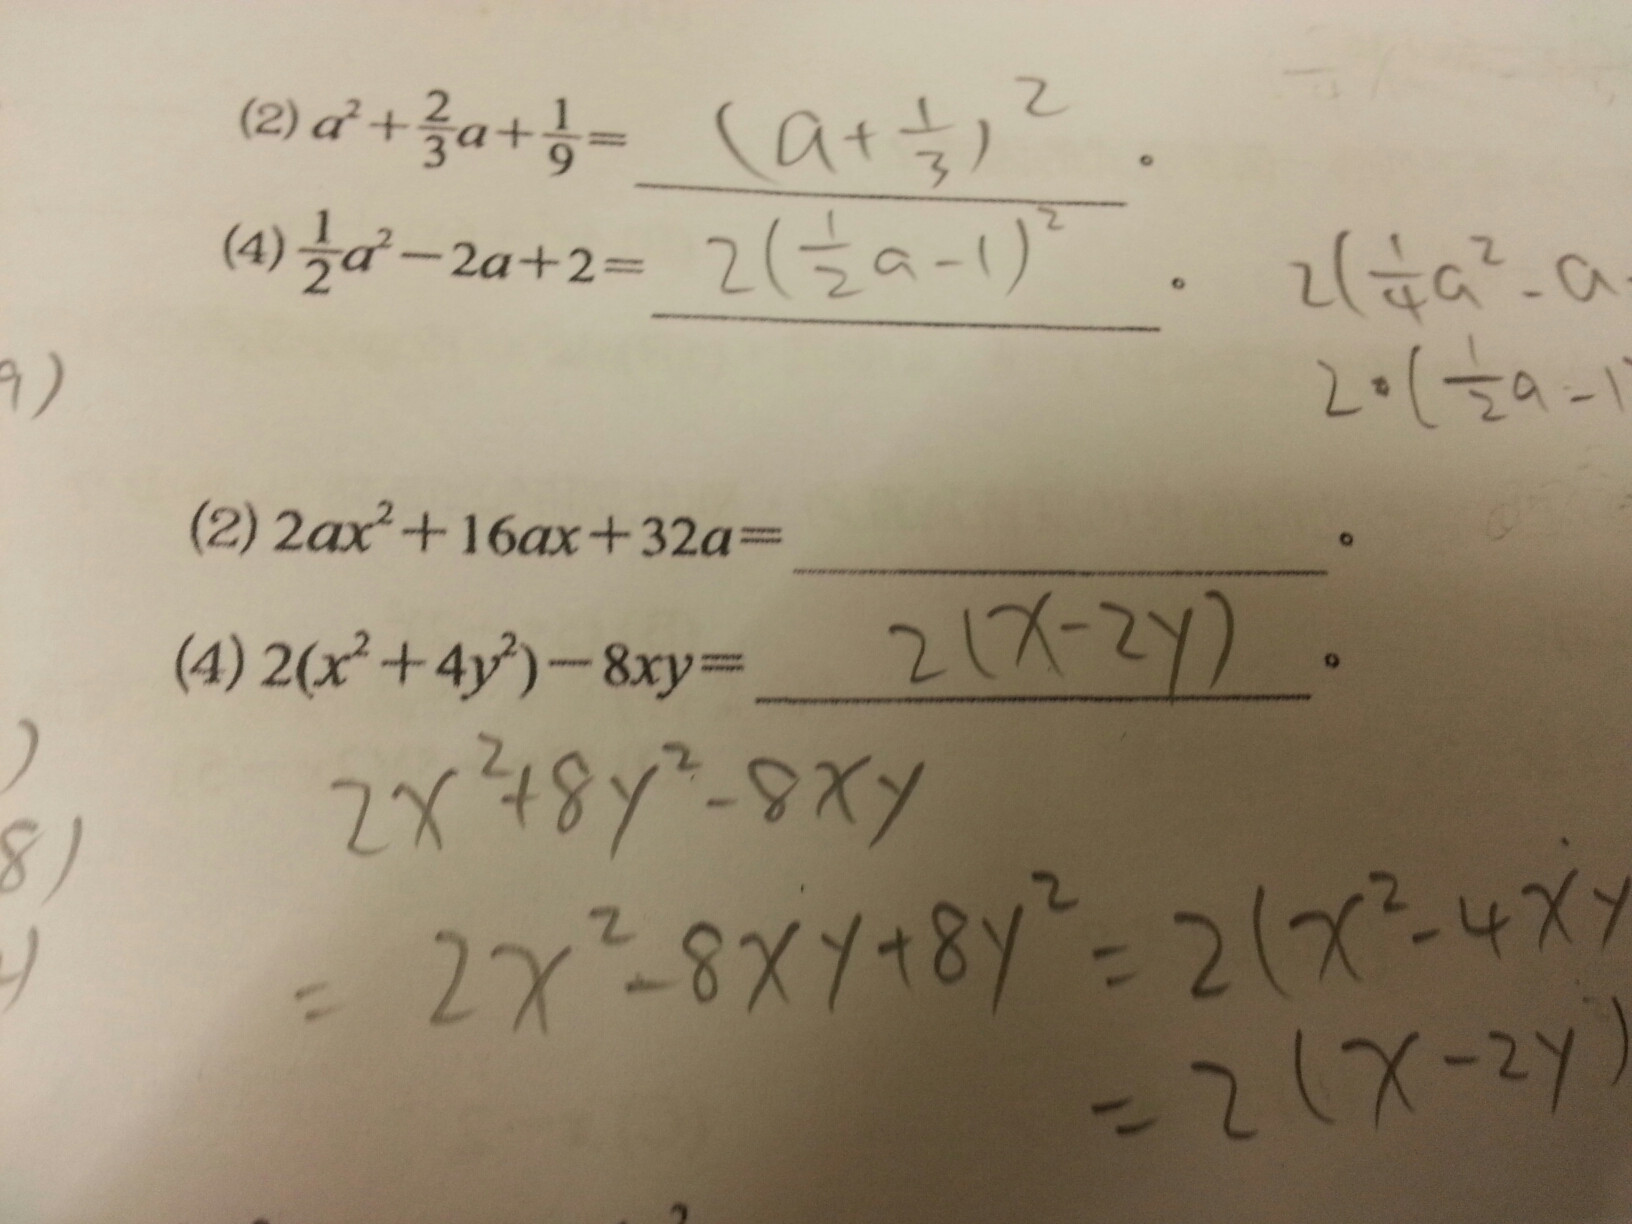 (2) a² + 2/3 a + 1/9 = (a + 1/3)² 。
(4) 1/2 a² − 2a + 2 = 2(1/2 a − 1)² 。
2(1/4 a² − a
2·(1/2 a − 1)
9)
(2) 2ax² + 16ax + 32a = 。
(4) 2(x² + 4y²) − 8xy = 2(x − 2y) 。
)
2x² + 8y² − 8xy
8)
= 2x² − 8xy + 8y² = 2(x² − 4xy
= 2(x − 2y)